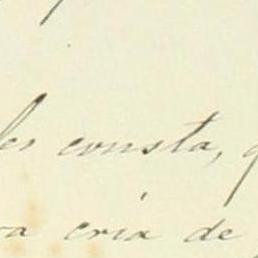 les consta, q
ra cria de